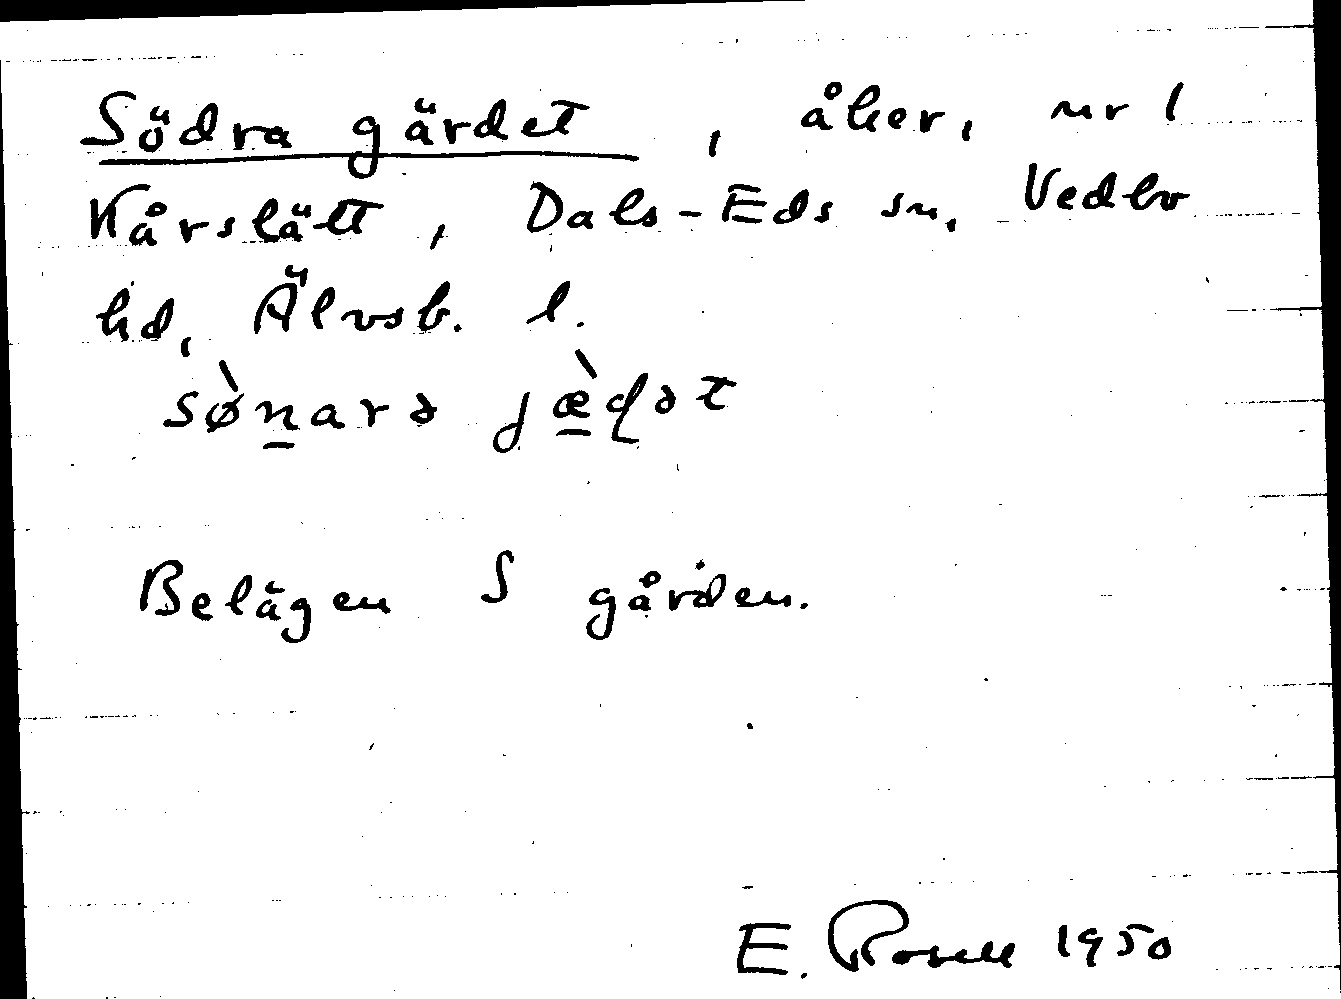 Södra gärdet, åker, nr 1
Kårslätt, Dals-Eds sn, Vedbo
hd, Älvsb. l.
sø̀n̲arə jæ̲̀ɖət
Belägen S gården.
E. Rosell 1950